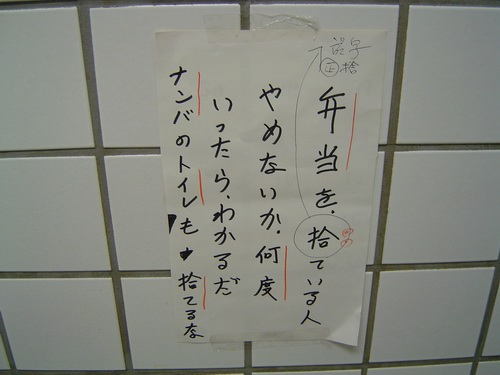 誤字
正捨
弁当を、拾ている人
やめないか、何度
いったら、わかるだ
ナンバのトイレも捨てるな